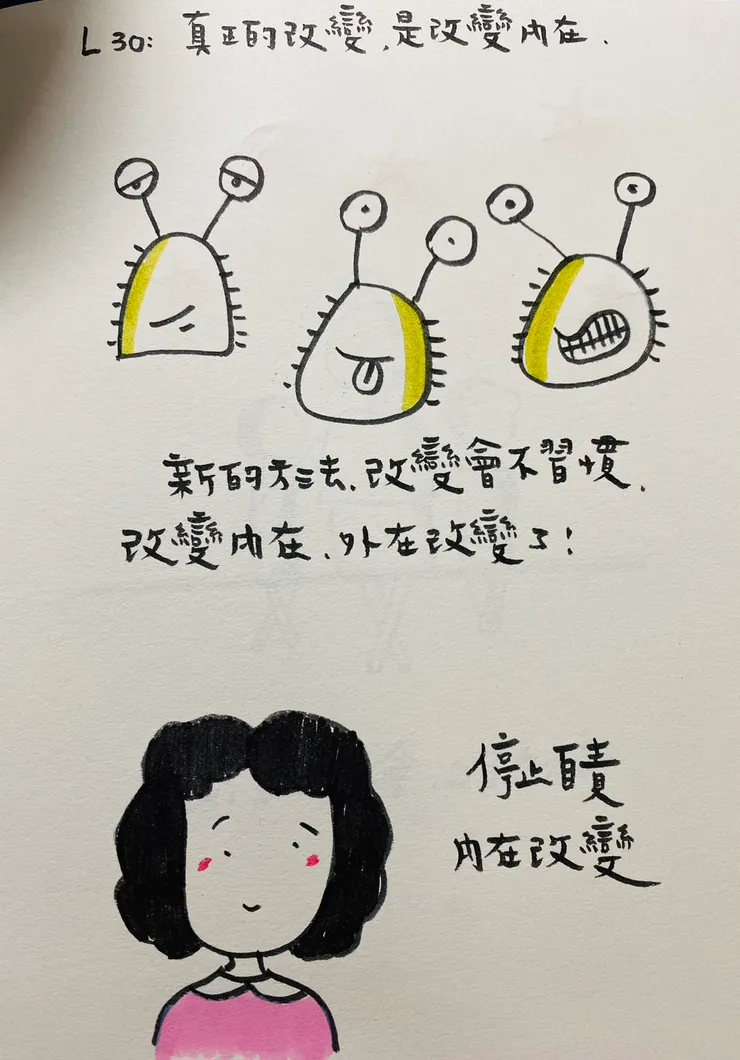 L30: 真正的改變，是改變內在.
新的方法，改變會不習慣，
改變內在，外在改變了！
停止自責
內在改變